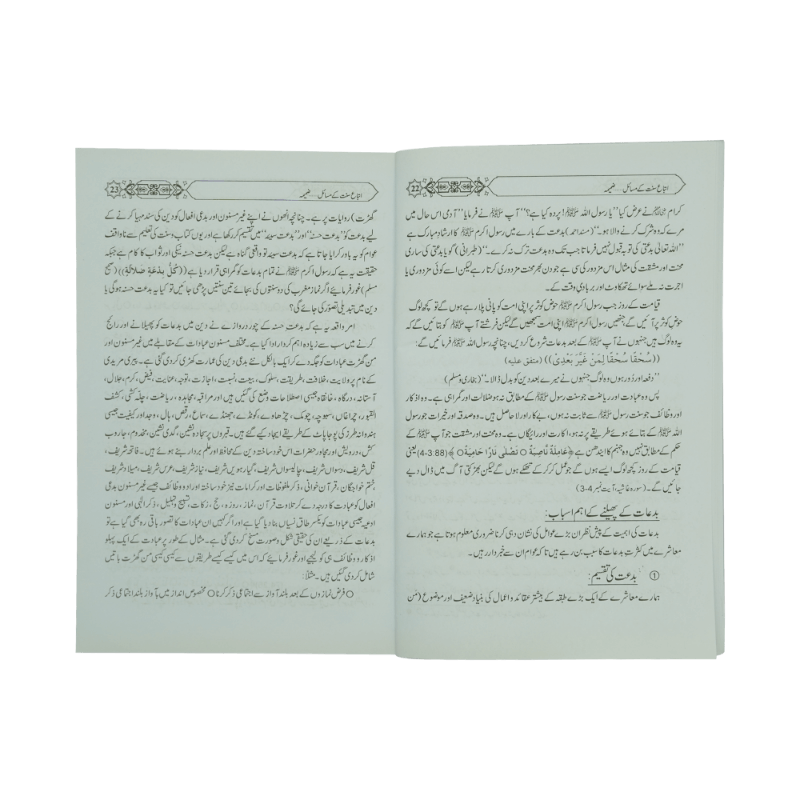 اتباع سنت کے مسائل ... ضمیمہ
22
کرام ﷢نے عرض کیا ”یا رسول اللہ ﷺ! پردہ کیا ہے؟“ آپ ﷺ نے فرمایا ”آدمی اس حال میں
مرے کہ وہ شرک کرنے والا ہو۔“ (مسند احمد) بدعت کے بارے میں رسول اکرم ﷺ کا ارشاد مبارک ہے
”اللہ تعالیٰ بدعتی کی توبہ قبول نہیں فرماتا جب تک وہ بدعت ترک نہ کرے۔“ (طبرانی) گویا بدعتی کی ساری
محنت اور مشقت کی مثال اس مزدور کی سی ہے جو دن بھر محنت مزدوری کرتا رہے لیکن اسے کوئی مزدوری یا
اجرت نہ ملے سوائے تھکاوٹ اور بربادی وقت کے۔
قیامت کے روز جب رسول اکرم ﷺ حوض کوثر پر اپنی امت کو پانی پلا رہے ہوں گے تو کچھ لوگ
حوض کوثر پر آئیں گے جنہیں رسول اکرم ﷺ اپنی امت سمجھیں گے لیکن فرشتے آپ ﷺ کو بتائیں گے کہ
یہ وہ لوگ ہیں جنہوں نے آپ ﷺ کے بعد بدعات شروع کر دیں، چنانچہ رسول اللہ ﷺ فرمائیں گے:
((سُحْقًا سُحْقًا لِمَنْ غَيَّرَ بَعْدِيْ)) (متفق علیہ)
”دفعہ اور دُور ہوں وہ لوگ جنہوں نے میرے بعد دین کو بدل ڈالا۔“ (بخاری ومسلم)
پس وہ عبادت اور ریاضت جو سنت رسول ﷺ کے مطابق نہ ہو ضلالت اور گمراہی ہے۔ وہ اذکار
اور وظائف جو سنت رسول ﷺ سے ثابت نہ ہوں، بے کار اور لاحاصل ہیں۔ وہ صدقہ اور خیرات جو رسول
اللہ ﷺ کے بتائے ہوئے طریقے پر نہ ہو، اکارت اور رائیگاں ہے۔ وہ محنت اور مشقت جو آپ ﷺ کے
حکم کے مطابق نہیں وہ جہنم کا ایندھن ہے ﴿عَامِلَةٌ نَّاصِبَةٌ ○ تَصْلٰى نَارًا حَامِيَةً ○﴾ (88:3-4) یعنی
قیامت کے روز کچھ لوگ ایسے ہوں گے جو عمل کر کر کے تھکے ہوں گے لیکن بھڑکتی آگ میں ڈال دیے
جائیں گے۔ (سورہ غاشیہ، آیت نمبر 4-3)
بدعات کے پھیلنے کے اہم اسباب:
بدعات کی اہمیت کے پیش نظر ان بڑے عوامل کی نشان دہی کرنا ضروری معلوم ہوتا ہے جو ہمارے
معاشرے میں بکثرت بدعات کا سبب بن رہے ہیں تاکہ عوام ان سے خبردار رہیں۔
① بدعت کی تقسیم:
ہمارے معاشرے کے ایک بڑے طبقہ کے بیشتر عقائد و اعمال کی بنیاد ضعیف اور موضوع (من
اتباع سنت کے مسائل ... ضمیمہ
23
گھڑت) روایات پر ہے۔ چنانچہ انھوں نے اپنے غیر مسنون اور بدعی افعال کو دین کی سند مہیا کرنے کے
لیے بدعت کو ”بدعت حسنہ“ اور ”بدعت سیئہ“ میں تقسیم کر رکھا ہے اور یوں کتاب وسنت کی تعلیم سے ناواقف
عوام کو یہ باور کرایا جاتا ہے کہ بدعت سیئہ تو واقعی گناہ ہے لیکن بدعت حسنہ نیکی اور ثواب کا کام ہے جبکہ
حقیقت یہ ہے کہ رسول اکرم ﷺ نے تمام بدعات کو گمراہی قرار دیا ہے ((كُلُّ بِدْعَةٍ ضَلَالَةٌ)) (صحیح
مسلم) غور فرمائیے! اگر نماز مغرب کی دو سنتوں کی بجائے تین سنتیں پڑھی جائیں تو کیا یہ بدعت حسنہ ہوگی یا
دین میں تبدیلی تصور کی جائے گی؟
امر واقعہ یہ ہے کہ بدعت حسنہ کے چور دروازے نے دین میں بدعات کو پھیلانے اور رائج
کرنے میں سب سے زیادہ اہم کردار ادا کیا ہے۔ مختلف مسنون عبادات کے مقابلے میں غیر مسنون اور
من گھڑت عبادات کو جگہ دے کر ایک بالکل نئے بدعی دین کی عمارت کھڑی کر دی گئی ہے۔ پیری مریدی
کے نام پر ولایت، خلافت، طریقت، سلوک، بیعت، نسبت، اجازت، توجہ، عنایت، فیض، کرم، جلال،
آستانہ، درگاہ، خانقاہ جیسی اصطلاحات وضع کی گئیں ہیں اور مراقبہ، مجاہدہ، ریاضت، چلہ کشی، کشف
القبور، چراغاں، سبوچہ، چومک، چڑھاوے، کونڈے، جھنڈے، سماع، رقص، حال، وجد اور کیفیت جیسی
ہندوانہ طرز کی پوجا پاٹ کے طریقے ایجاد کیے گئے ہیں۔ قبروں پر سجادہ نشین، گدی نشین، مخدوم، جاروب
کش، درویش اور مجاور حضرات اس خود ساختہ دین کے محافظ اور علم بردار بنے ہوئے ہیں۔ فاتحہ شریف،
قل شریف، دسواں شریف، چالیسواں شریف، گیارہویں شریف، نیاز شریف، عرس شریف، میلاد شریف
ختم خواجگان، قرآن خوانی، ذکر ملفوظات اور کرامات نیز خود ساختہ اوراد و وظائف جیسے غیر مسنون بدعی
افعال کو عبادت کا درجہ دے کر تلاوت قرآن، نماز، روزہ، حج، زکاۃ، تسبیح و تہلیل، ذکر الٰہی اور مسنون
ادعیہ جیسی عبادات کو یکسر طاق نسیاں بنا دیا گیا ہے اور اگر کہیں ان عبادات کا تصور باقی رہ بھی گیا ہے تو
بدعات کے ذریعے ان کی حقیقی شکل و صورت مسخ کر دی گئی ہے۔ مثال کے طور پر عبادت کے ایک پہلو
اذکار و وظائف ہی کو لیجیے اور غور فرمائیے کہ اس میں کیسے کیسے طریقوں سے کیسی کیسی من گھڑت باتیں
شامل کر دی گئیں ہیں۔ مثلاً:
○ فرض نمازوں کے بعد بلند آواز سے اجتماعی ذکر کرنا ○ مخصوص انداز میں بآواز بلند اجتماعی ذکر